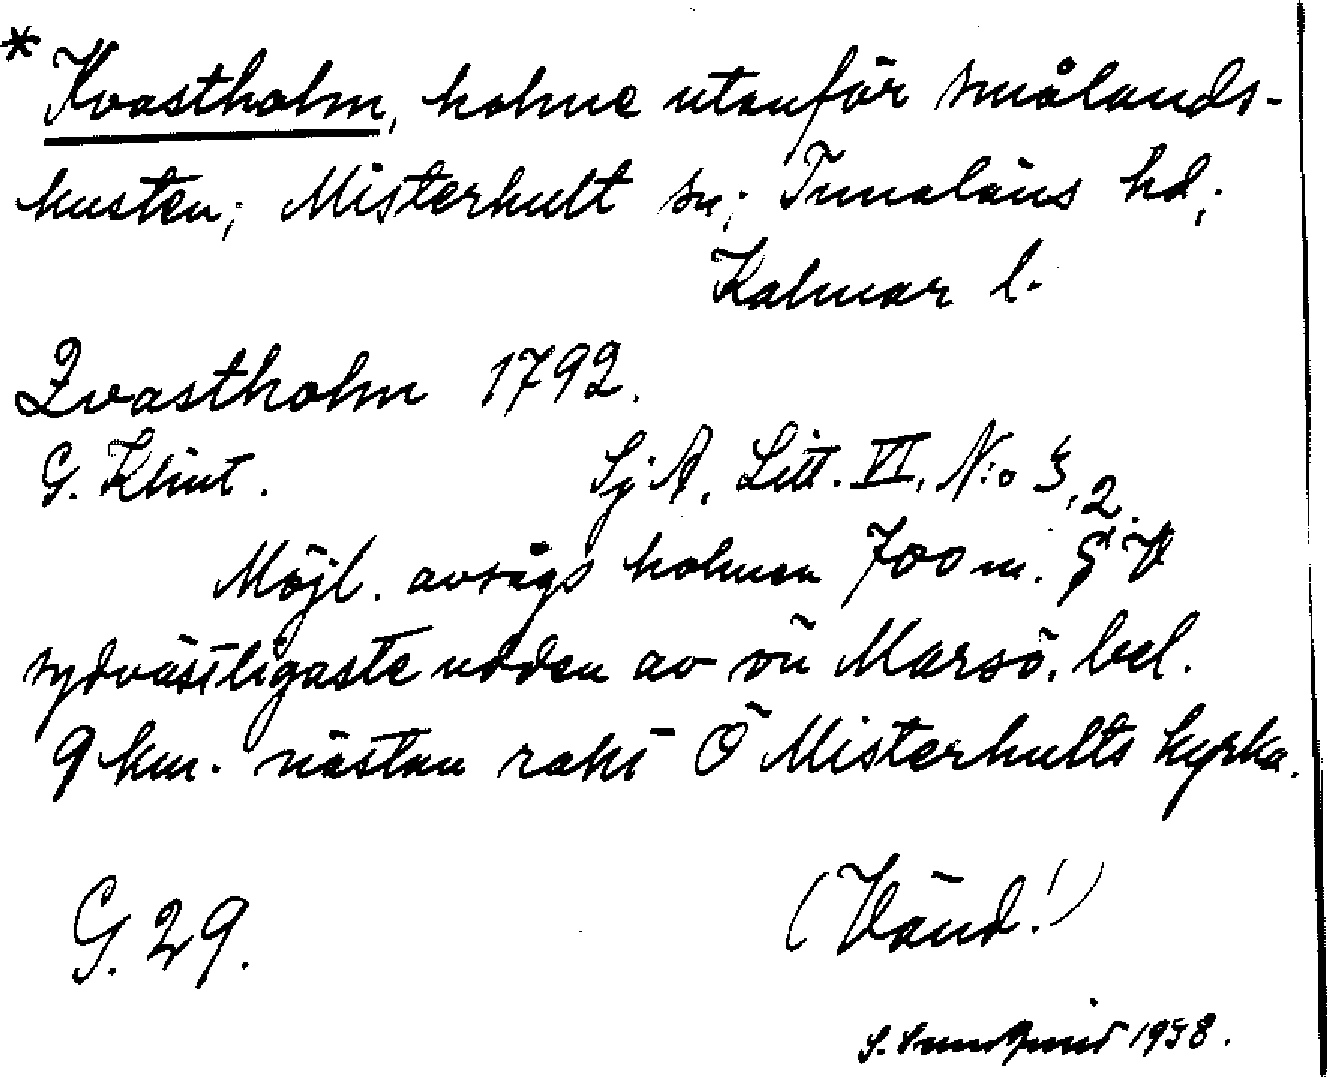 * Kvastholm, holme utanför smålands-
kusten; Misterhult sn; Tunaläns hd;
Kalmar l.
Qvastholm 1792.
G. Klint. SjA. Litt. VI, N:o 3,2.
Möjl. avsågs holmen 700 m. SV
sydvästligaste udden av ön Marsö, bel.
9 km. nästan rakt Ö Misterhults kyrka.
G. 29. (Vänd!)
1958.